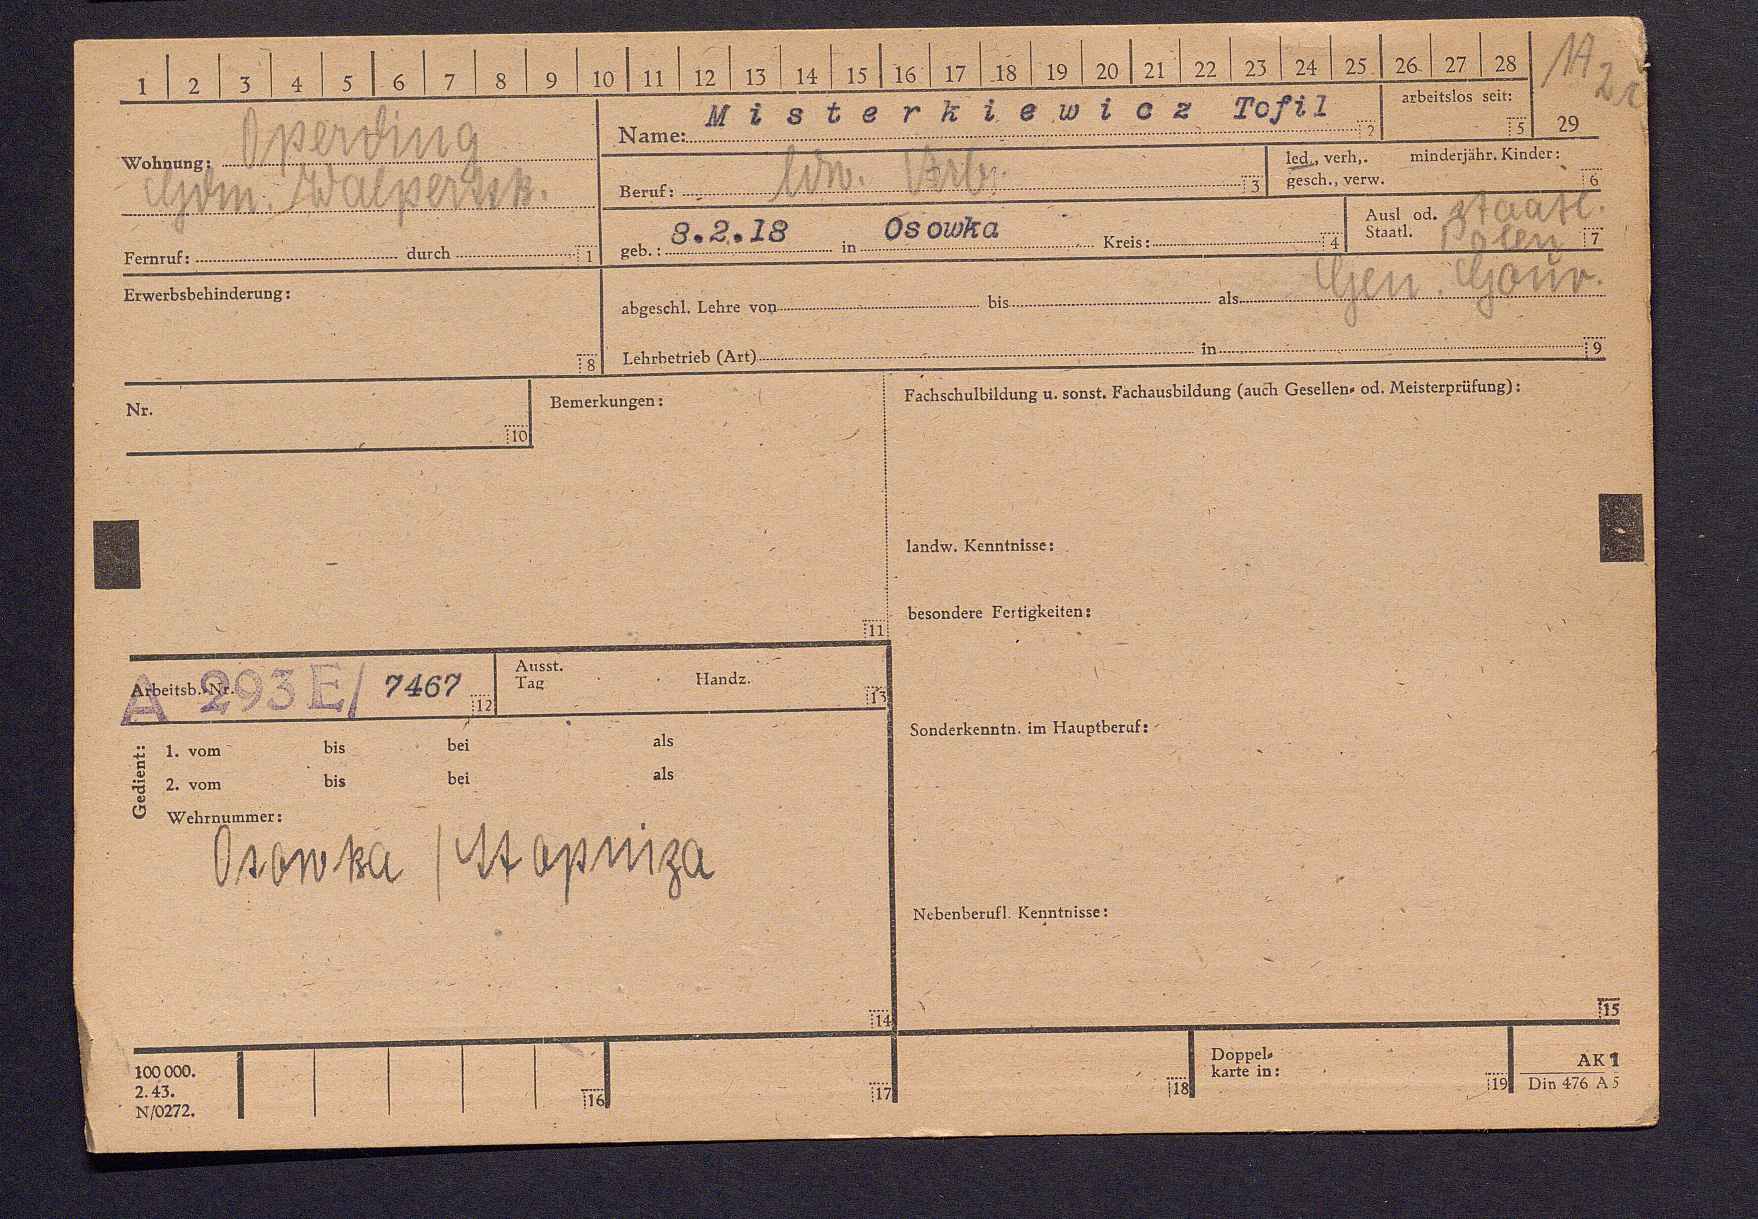 1 2 3 4 5 6 7 8 9 10 11 12 13 14 15 16 17 18 19 20 21 22 23 24 25 26 27 28
1A
29
Name: Misterkiewicz Tofil 2
arbeitslos seit: 5
Wohnung: Operding
Gdm. Walpertsk.
Fernruf: durch 1
Beruf: ldw. Arb. 3
led., verh,. minderjähr. Kinder:
gesch., verw. 6
geb.: 8.2.18 in Osowka Kreis: 4
Ausl od. staatl.
Staatl. Polen 7
Gen. Gouv.
Erwerbsbehinderung: 8
abgeschl. Lehre von bis als
Lehrbetrieb (Art) in 9
Nr. 10
Bemerkungen: 11
Fachschulbildung u. sonst. Fachausbildung (auch Gesellen- od. Meisterprüfung):
landw. Kenntnisse:
besondere Fertigkeiten:
Arbeitsb.-Nr. A 293E/ 7467 12
Ausst.
Tag Handz. 13
Sonderkenntn. im Hauptberuf:
Gedient:
1. vom bis bei als
2. vom bis bei als
Wehrnummer:
Osowka / Stopniza
14
Nebenberufl. Kenntnisse:
15
100 000.
2. 43.
N/0272.
16 17 18
Doppel-
karte in: 19
AK 1
Din 476 A 5